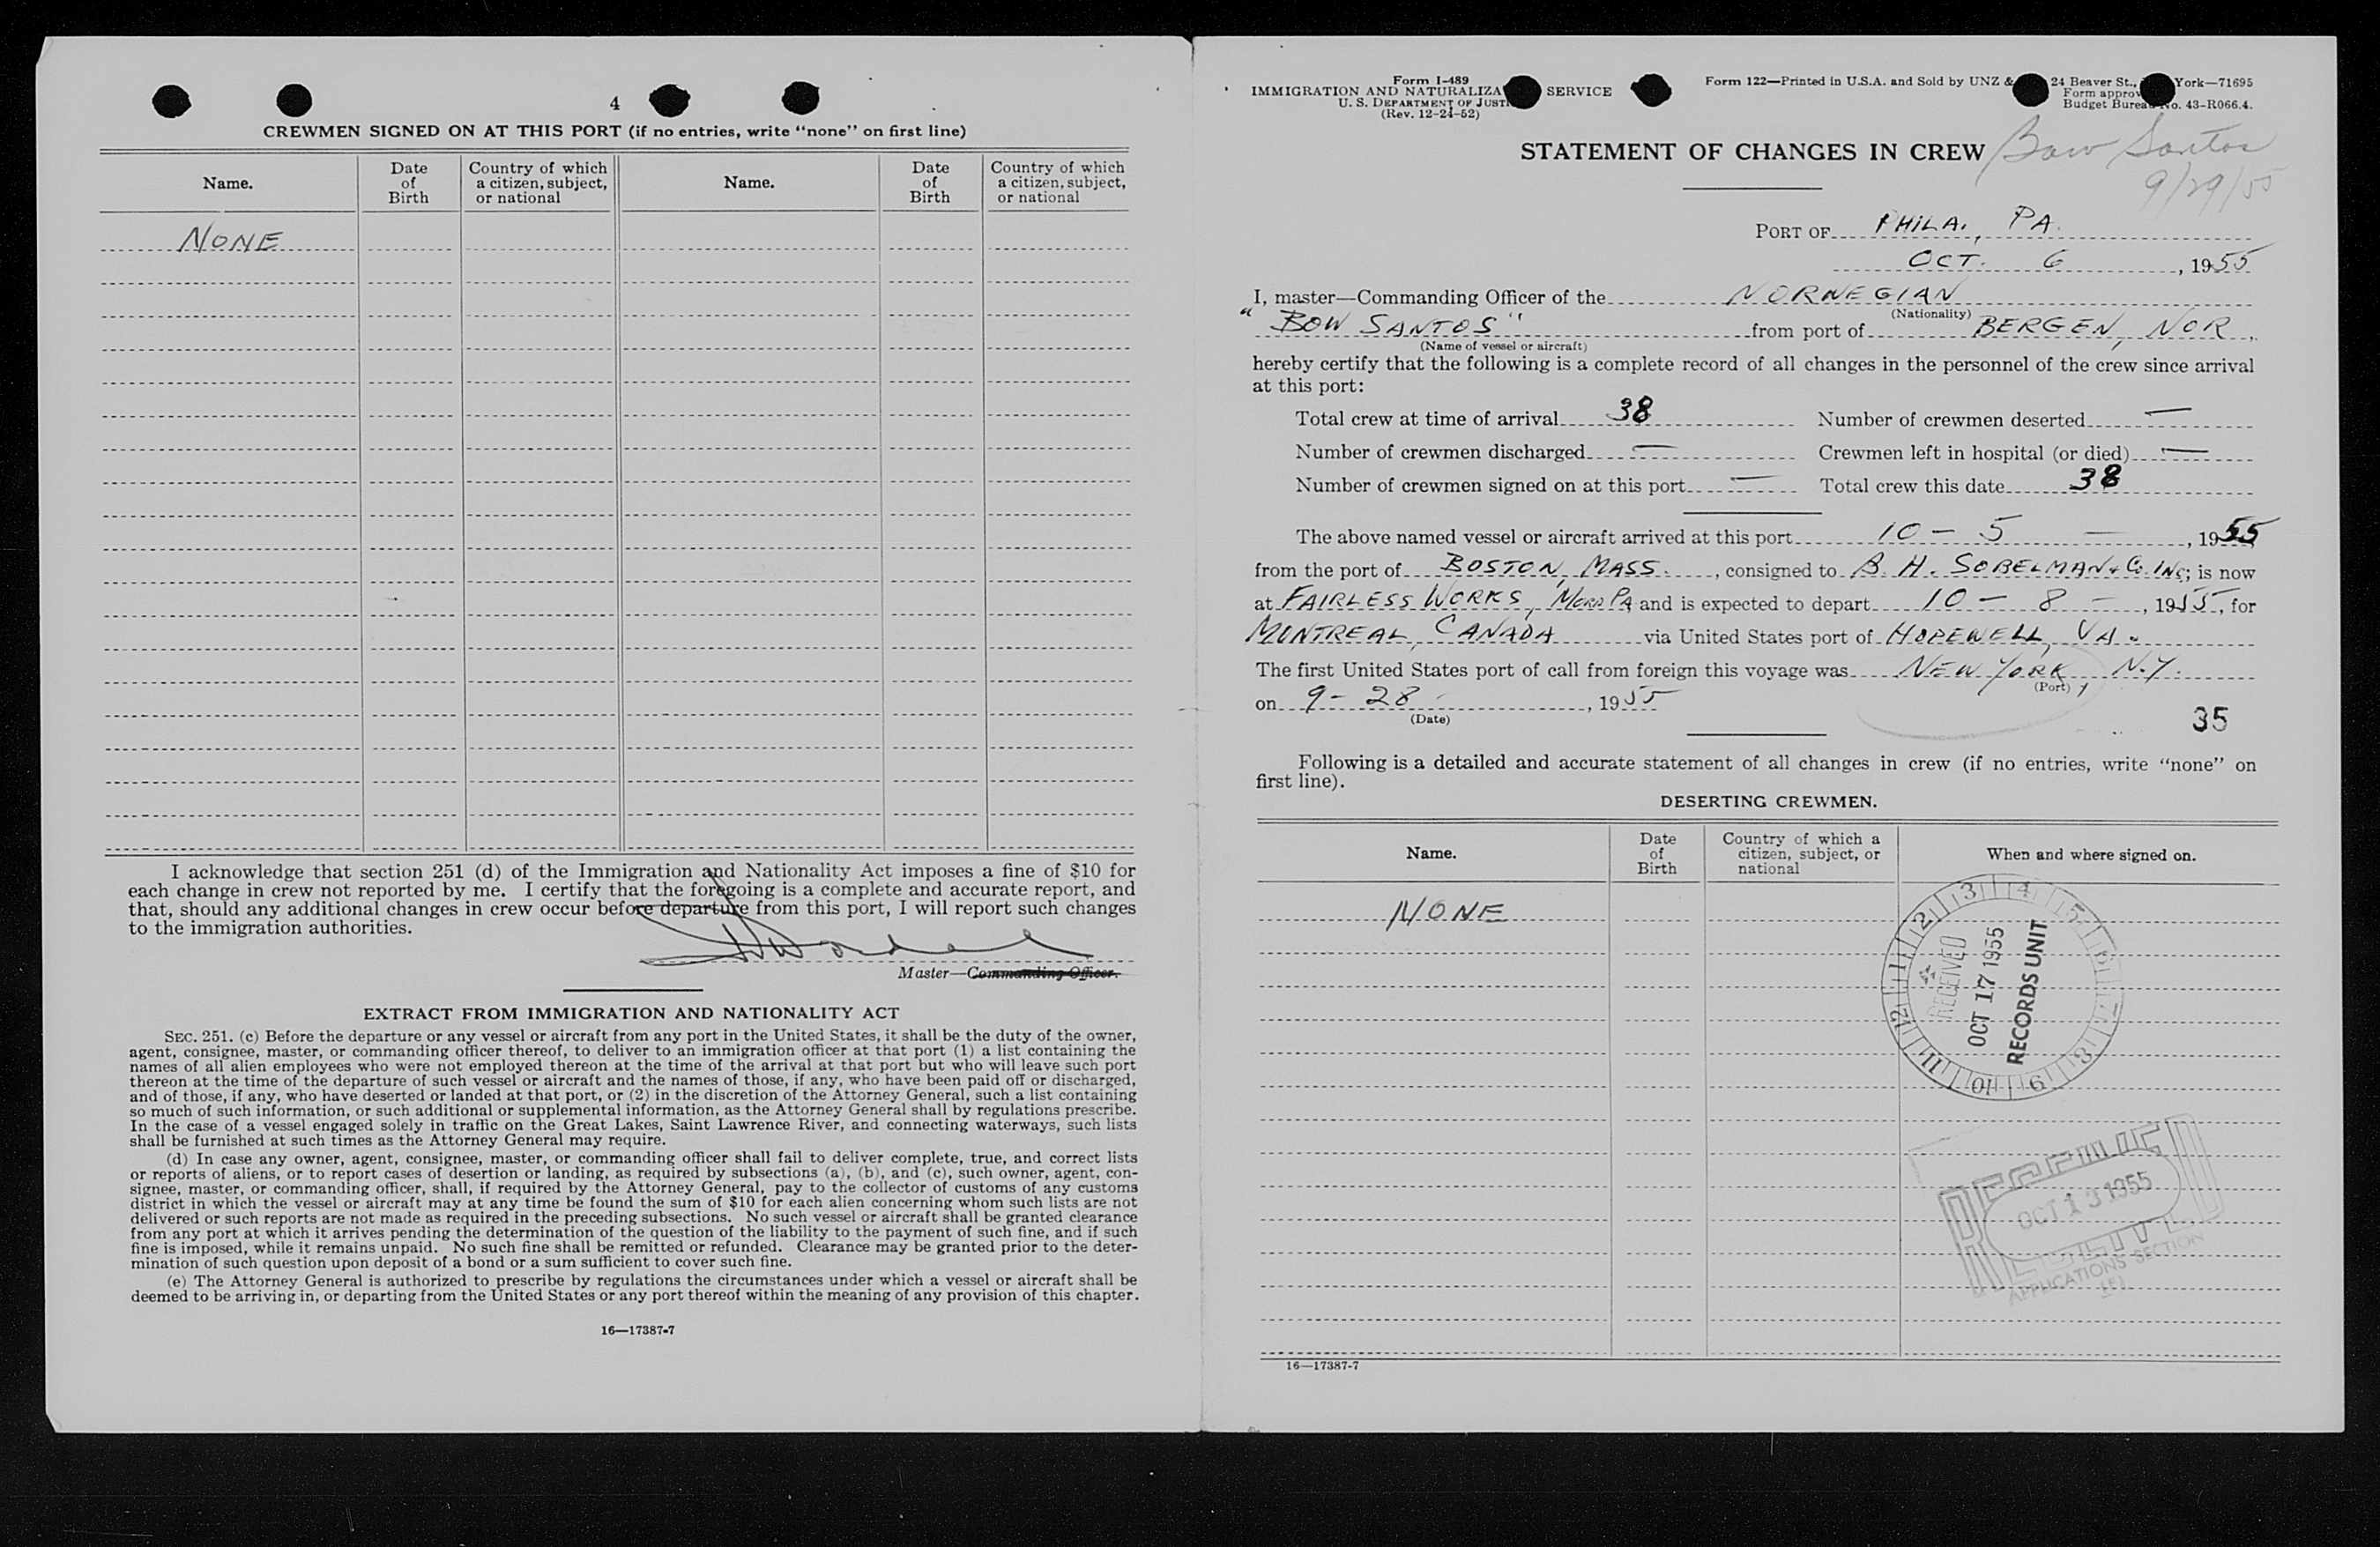 4
CREWMEN SIGNED ON AT THIS PORT (if no entries, write “none” on first line)
Name. Date of Birth Country of which a citizen, subject, or national Name. Date of Birth Country of which a citizen, subject, or national
NONE
I acknowledge that section 251 (d) of the Immigration and Nationality Act imposes a fine of $10 for
each change in crew not reported by me. I certify that the foregoing is a complete and accurate report, and
that, should any additional changes in crew occur before departure from this port, I will report such changes
to the immigration authorities.
Master—Commanding Officer.
EXTRACT FROM IMMIGRATION AND NATIONALITY ACT
SEC. 251. (c) Before the departure or any vessel or aircraft from any port in the United States, it shall be the duty of the owner,
agent, consignee, master, or commanding officer thereof, to deliver to an immigration officer at that port (1) a list containing the
names of all alien employees who were not employed thereon at the time of the arrival at that port but who will leave such port
thereon at the time of the departure of such vessel or aircraft and the names of those, if any, who have been paid off or discharged,
and of those, if any, who have deserted or landed at that port, or (2) in the discretion of the Attorney General, such a list containing
so much of such information, or such additional or supplemental information, as the Attorney General shall by regulations prescribe.
In the case of a vessel engaged solely in traffic on the Great Lakes, Saint Lawrence River, and connecting waterways, such lists
shall be furnished at such times as the Attorney General may require.
(d) In case any owner, agent, consignee, master, or commanding officer shall fail to deliver complete, true, and correct lists
or reports of aliens, or to report cases of desertion or landing, as required by subsections (a), (b), and (c), such owner, agent, con-
signee, master, or commanding officer, shall, if required by the Attorney General, pay to the collector of customs of any customs
district in which the vessel or aircraft may at any time be found the sum of $10 for each alien concerning whom such lists are not
delivered or such reports are not made as required in the preceding subsections. No such vessel or aircraft shall be granted clearance
from any port at which it arrives pending the determination of the question of the liability to the payment of such fine, and if such
fine is imposed, while it remains unpaid. No such fine shall be remitted or refunded. Clearance may be granted prior to the deter-
mination of such question upon deposit of a bond or a sum sufficient to cover such fine.
(e) The Attorney General is authorized to prescribe by regulations the circumstances under which a vessel or aircraft shall be
deemed to be arriving in, or departing from the United States or any port thereof within the meaning of any provision of this chapter.
16—17387-7
Form I-489
IMMIGRATION AND NATURALIZA SERVICE
U. S. DEPARTMENT OF JUST
(Rev. 12-24-52)
Form 122—Printed in U.S.A. and Sold by UNZ & 24 Beaver St., York—71695
Form approv
Budget Bureau No. 43-R066.4.
STATEMENT OF CHANGES IN CREW Bow Santos
9/29/55
PORT OF PHILA., PA.
OCT. 6, 1955
I, master—Commanding Officer of the NORWEGIAN
(Nationality)
"BOW SANTOS" from port of BERGEN, NOR,
(Name of vessel or aircraft)
hereby certify that the following is a complete record of all changes in the personnel of the crew since arrival
at this port:
Total crew at time of arrival 38 Number of crewmen deserted —
Number of crewmen discharged — Crewmen left in hospital (or died) —
Number of crewmen signed on at this port — Total crew this date 38
The above named vessel or aircraft arrived at this port 10 - 5 -, 1955
from the port of BOSTON, MASS., consigned to B. H. SOBELMAN & Co. INC; is now
at FAIRLESS WORKS, PA and is expected to depart 10 - 8 -, 1955, for
MONTREAL, CANADA via United States port of HOPEWELL, VA.
The first United States port of call from foreign this voyage was NEW YORK, N.Y.
(Port)
on 9-28, 1955
(Date)
35
Following is a detailed and accurate statement of all changes in crew (if no entries, write “none” on
first line).
DESERTING CREWMEN.
Name. Date of Birth Country of which a citizen, subject, or national When and where signed on.
NONE
1 2 3 4 5 6 7 8 9 10 11 12
RECEIVED
OCT 17 1955
RECORDS UNIT
OCT 13 1955
APPLICATIONS SECTION
16—17387-7